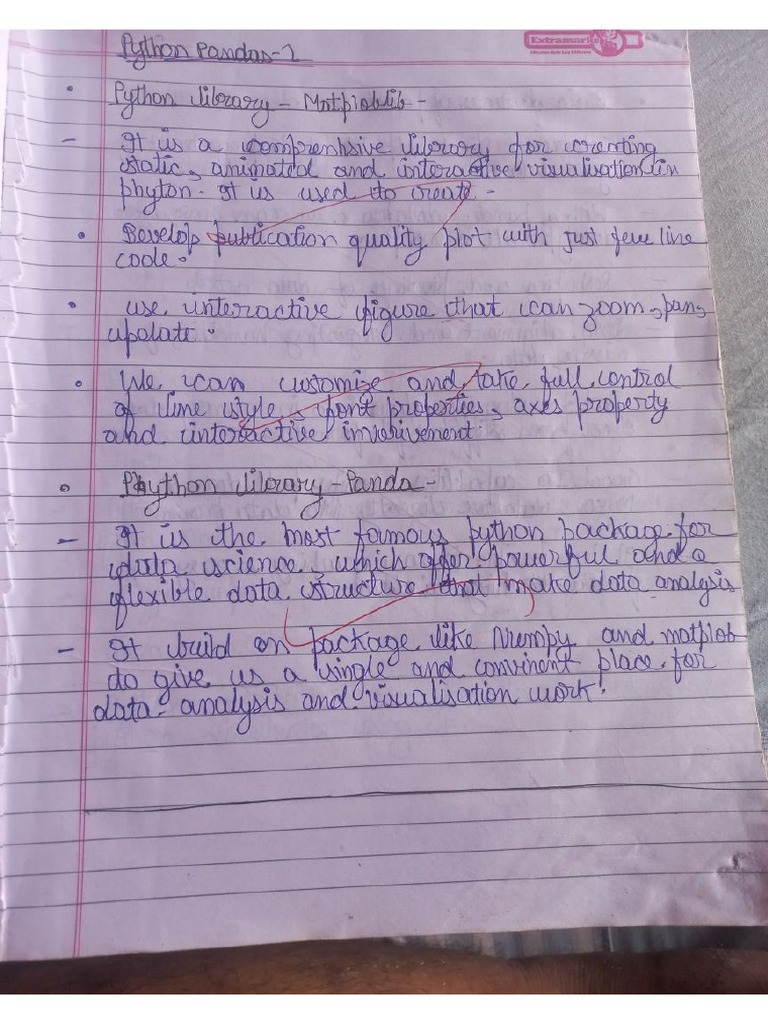 Extramarks
Python Pandas-2
• Python library - Matplotlib -
- It is a comprenhsive library for creating
static, animated and interactive visualisation in
phyton. It is used to create -
• Develop publication quality plot with just few line
code.
• use interactive figure that can zoom, pan,
update.
• We can customize and take full control
of line style, font properties, axes property
and interactive involvement.
• Phython library - Panda -
- It is the most famous python package for
data science, which offer powerful and a
flexible data structure that make data analysis
- It build on package like Numpy and matplob
to give us a single and convinent place for
data- analysis and visualisation work.